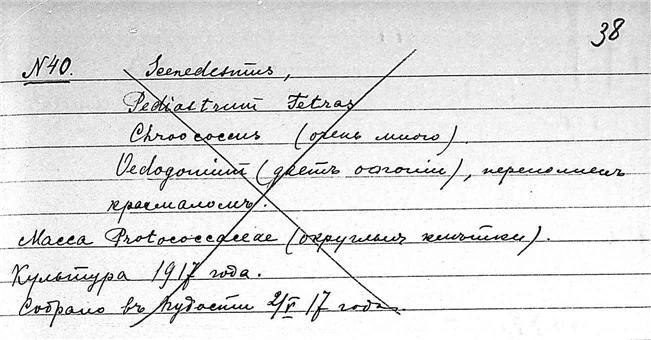 38
N 40. Scenedesmus,
Pediastrum Tetras
Chroococcus (очень много).
Oedogonium (даетъ оогонии), переполненъ
крахмаломъ.
Масса Protococcaceae (округлыя клѣтки).
Культура 1917 года.
Собрано въ Пудости 2/V 17 года.